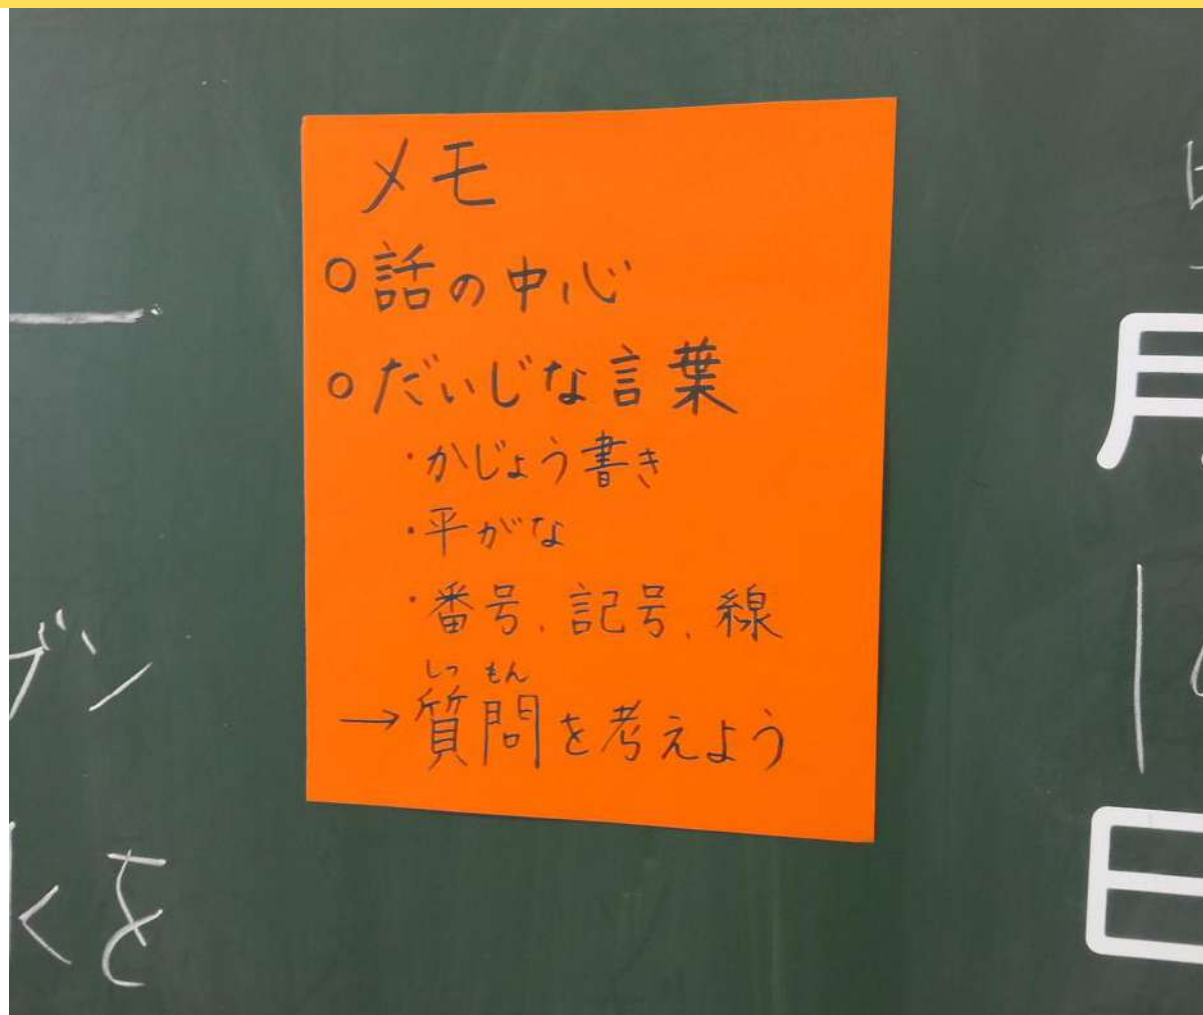 メモ
○話の中心
○だいじな言葉
・かじょう書き
・平がな
・番号、記号、線
しつもん
→質問を考えよう
月
日
くを